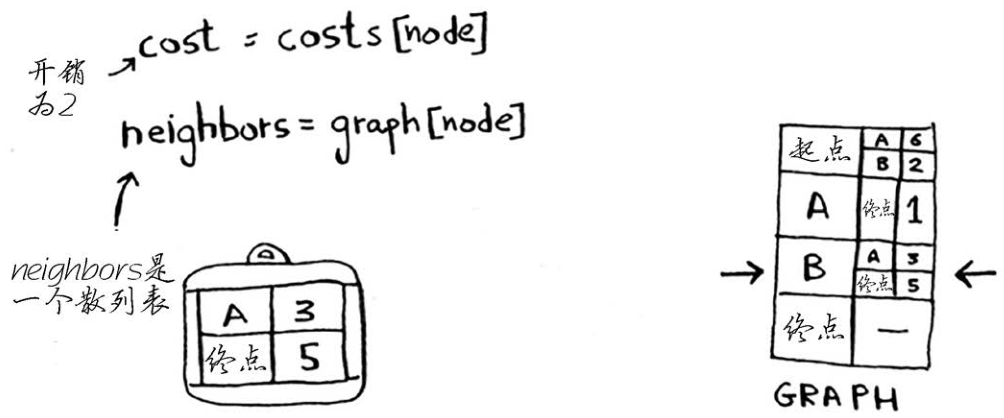 cost = costs[node]
开销
为2
neighbors = graph[node]
neighbors是
一个散列表
A 3
终点 5
起点 A 6
B 2
A 终点 1
B A 3
终点 5
终点 —
GRAPH